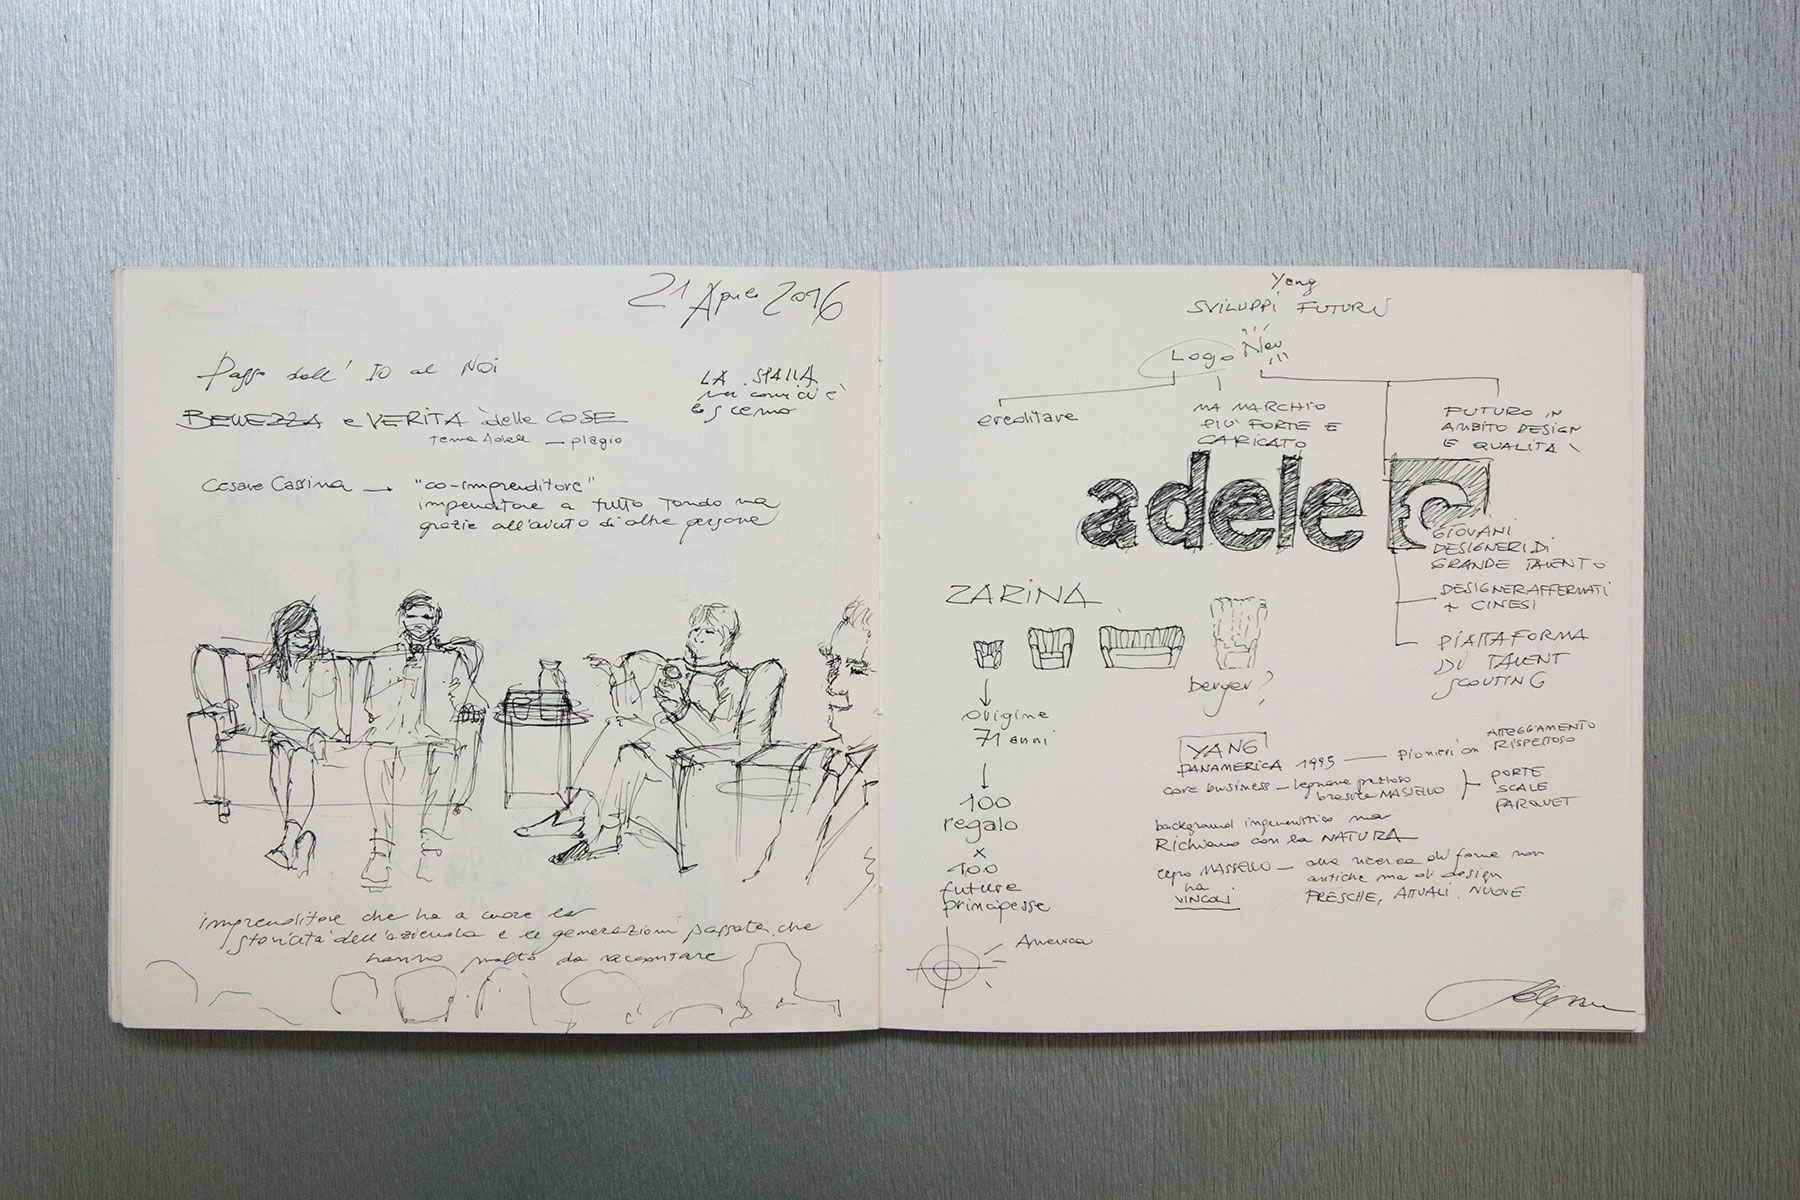 21 Aprile 2016
Passo dall' IO al NOI
LA SPALLA
non comici è
lo scemo
BELLEZZA e VERITÀ delle COSE
tema Adele — plagio
Cesare Cassina → "co-imprenditore"
impenditore a tutto tondo ma
grazie all'aiuto di altre persone
imprenditore che ha a cuore la
storicità dell'azienda e le generazioni passate che
hanno molto da raccontare
Yang
SVILUPPI FUTURI
Logo New
ereditare
MA MARCHIO
PIU' FORTE E
CARICATO
FUTURO IN
AMBITO DESIGN
E QUALITA'
adele
GIOVANI
DESIGNER DI
GRANDE TALENTO
DESIGNER AFFERMATI
+ CINESI
PIATTAFORMA
DI TALENT
SCOUTING
ZARINA
berger?
origine
71 anni
100
regalo
x
100
future
principesse
America
YANG
PANAMERICA 1995 — pionieri con
ATTEGGIAMENTO
RISPETTOSO
core business — legname
MASSELLO
PORTE
SCALE
PARQUET
background ma
Richiamo con la NATURA
MASSELLO — alla ricerca di forme non
ha
VINCOLI
antiche ma di design
FRESCHE, ATTUALI. NUOVE